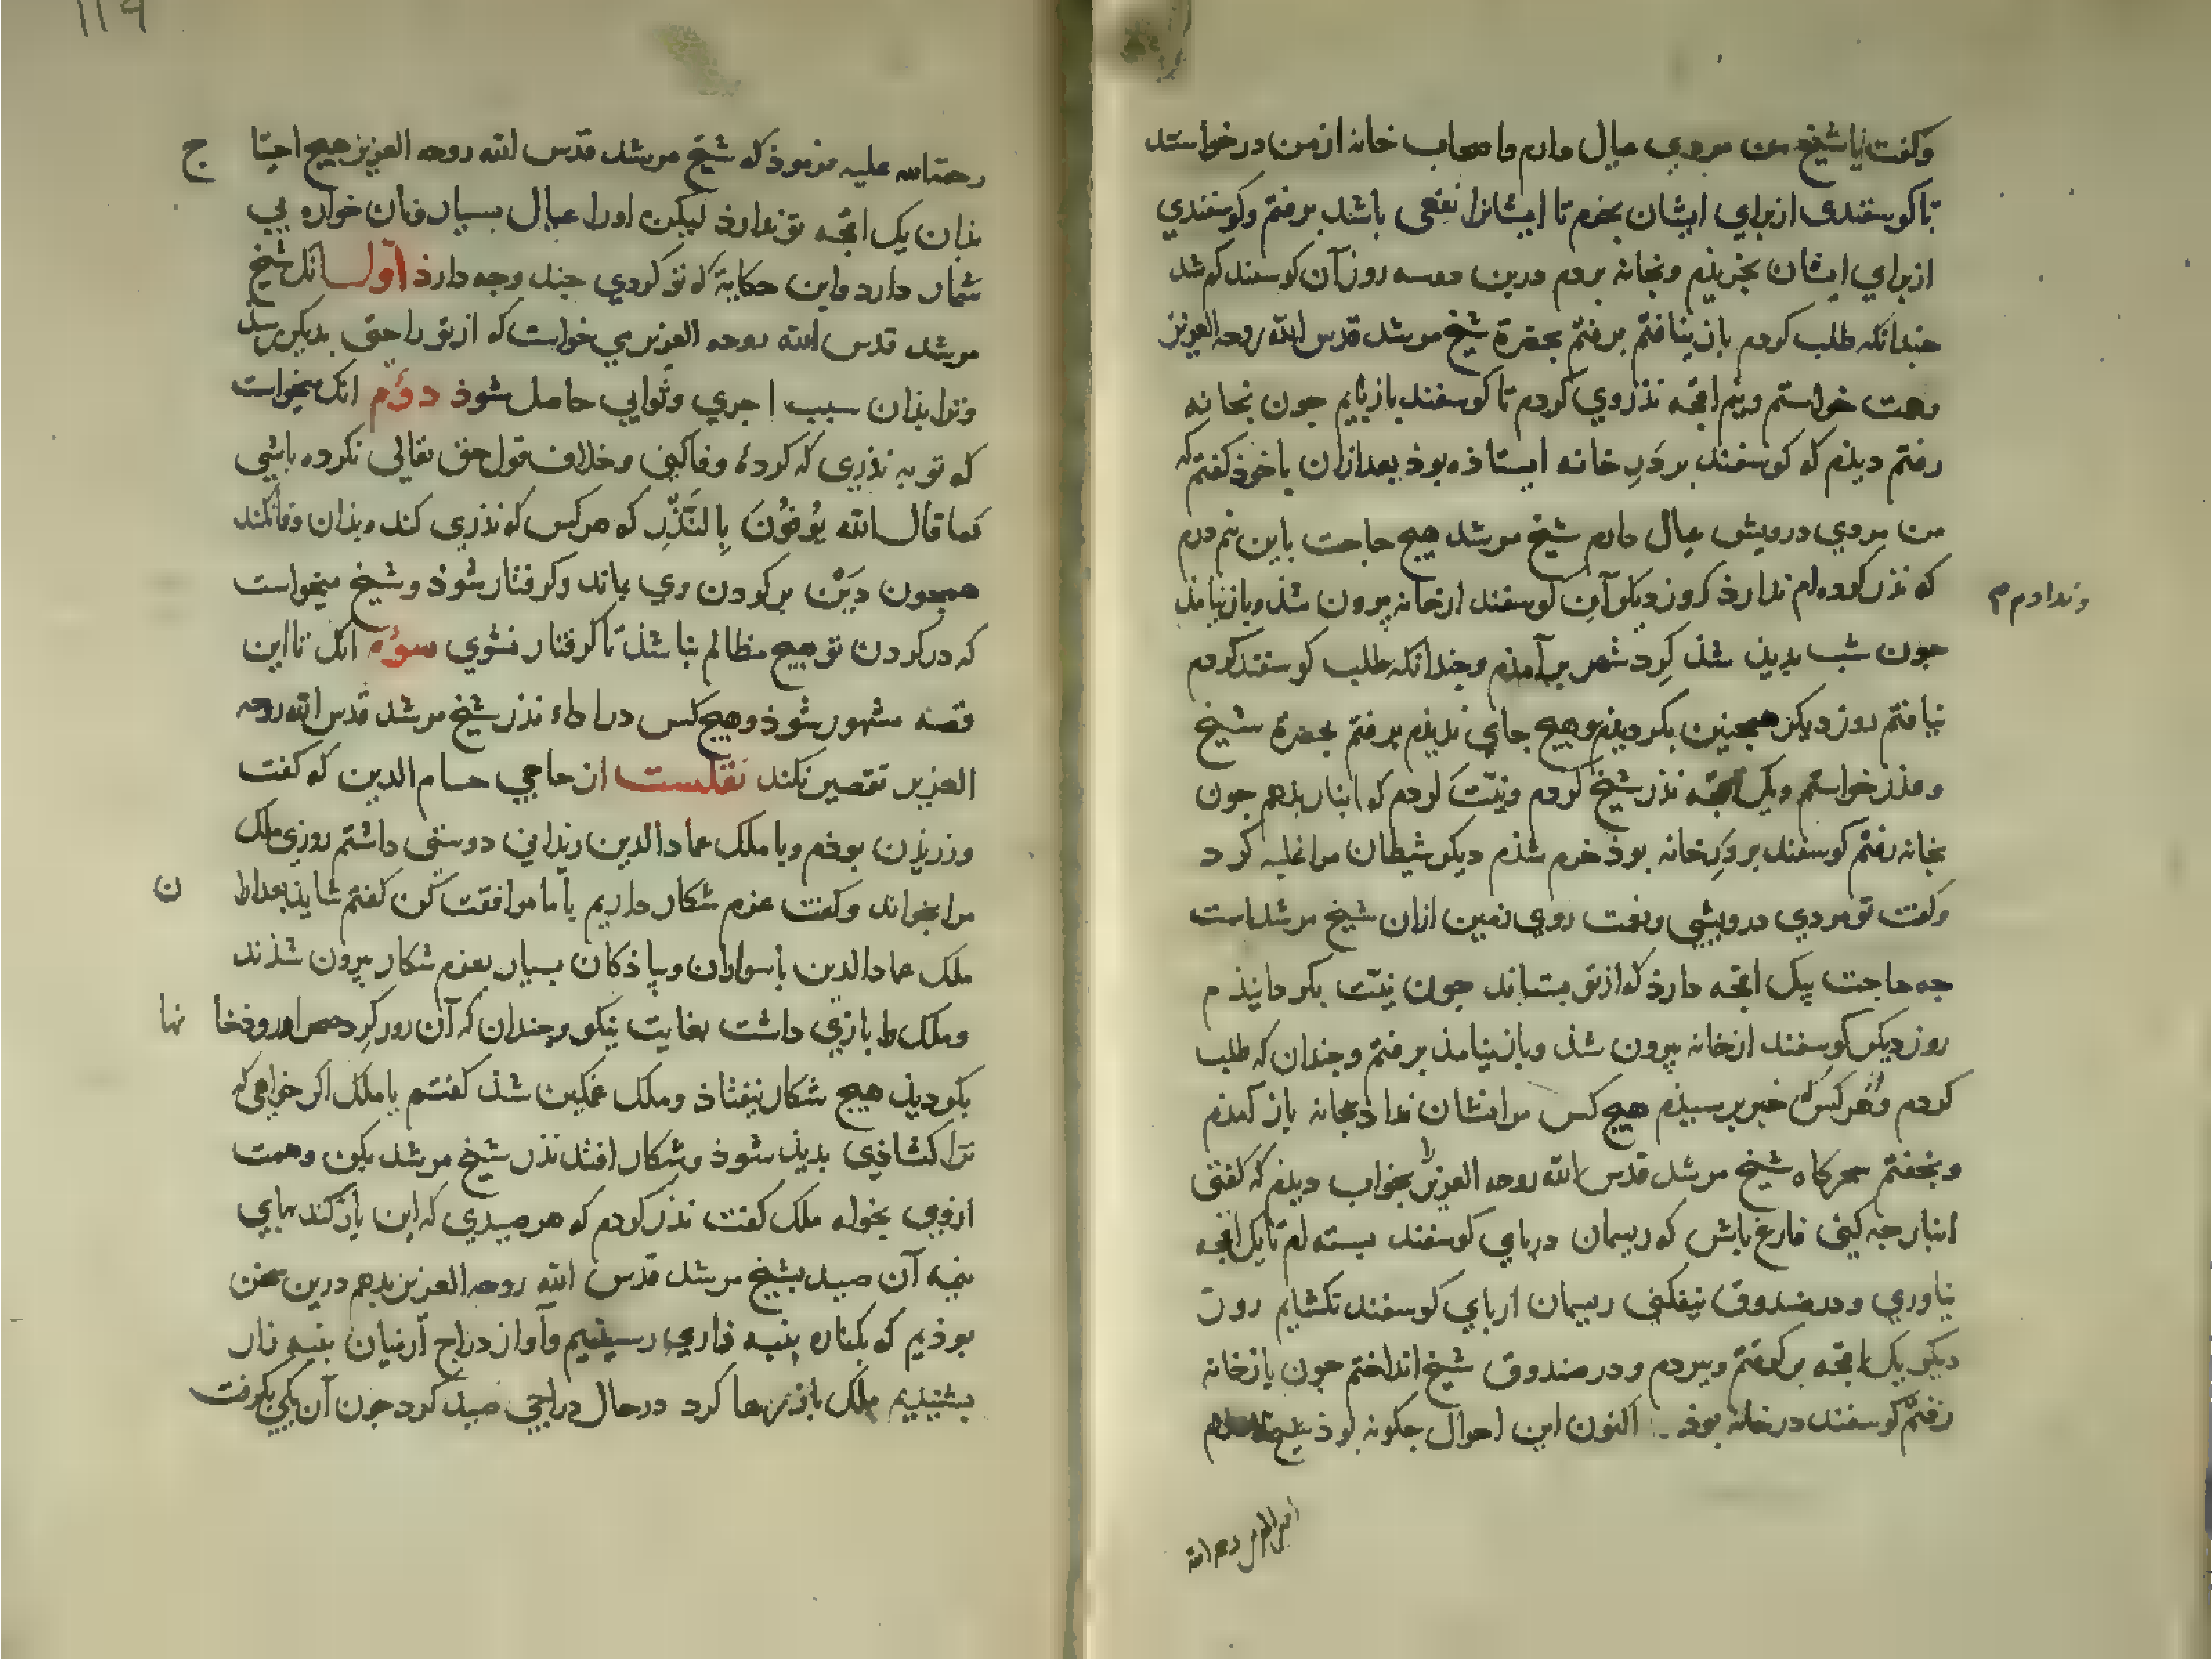 وکفت یا شیخ من مردی عیال دارم واصحاب خانه از من درخواستند
تا کوسفندی از برای ایشان بخرم تا ایشانرا نفعی باشد برفتم وکوسفندی
از برای ایشان بخریذم وبخانه بردم درین دوسه روز آن کوسفند کم شد
جندانکه طلب کردم بازنیافتم برفتم بحضرة شیخ مرشد قدس الله روحه العزیز
وهمت خواستم ونیم اقجه نذر وی کردم تا کوسفند بازیابم جون بخانه
رفتم دیذم که کوسفند بر دَرِ خانه ایستاذه بوذ بعد ازان با خوذ کفتم که
من مردی درویش عیال دارم شیخ مرشد هیج حاجت باین نیم درم
که نذر کرده ام ندارذ وندادم روز دیکر آن کوسفند از خانه بیرون شذ وبازنیامذ
جون شب بدیذ شذ کِرد شهر برآمذم وجندانکه طلب کوسفند کردم
نیافتم روز دیکر همجنین بکردیذم وهیج جای ندیذم برفتم بحضرة شیخ
وعذر خواستم ویک اقجه نذر شیخ کردم ونیّت کردم که اینبار بدهم جون
بخانه رفتم کوسفند بر دَرِ خانه بوذ خرم شذم دیکر شیطان مرا غلبه کرد
وکفت تو مردی درویشی ونعمت روی زمین ازان شیخ مرشد است
جه حاجت بیک اقجه دارذ که از تو بستاند جون نیّت بکردانیذم
روز دیکر کوسفند از خانه بیرون شذ وبازنیامذ برفتم وجندان که طلب
کردم واز هرکس خبر برسیذم هیج کس مرا نشان نداذ بخانه باز آمذم
وبخفتم سحرکاه شیخ مرشد قدس الله روحه العزیز را بخواب دیذم که کفتی
اینبار جه کنی فارغ باش که ریسمان در پای کوسفند بسته ام تا یک اقجه
نیاوری ودر صندوق نیفکنی ریسمان از پای کوسفند نکشایم روز
دیکر یک اقجه برکرفتم وببردم ودر صندوق شیخ انداختم جون باز خانه
رفتم کوسفند در خانه بوذ . اکنون این احوال جکونه بوذ شیخ
وندادم م
رحمة الله علیه فرموذ که شیخ مرشد قدس الله روحه العزیز هیج احتیاج
بذان یک اقجه تو ندارذ لیکن اورا عیال بسیار ونان خواره بی
شمار دارد واین حکایة که تو کردی جند وجه دارذ اول انک شیخ
مرشد قدس الله روحه العزیز می خواست که از تو راحتی بدیکری رسد
وترا بذان سبب اجری وثوابی حاصل شوذ دوم انک میخواست
که تو به نذری که کردهٔ وفا کنی وخلاف قول حق تعالی نکرده باشی
کما قال الله یُوفُونَ بِالنَّذْرِ که هرکس که نذری کند وبذان وفا نکند
همجون دَیْن بر کردن وی بماند وکرفتار شوذ وشیخ میخواست
که در کردن تو هیج مظالم نباشذ تا کرفتار نشوی سوم انک تا این
قصه مشهور شوذ وهیج کس در اداء نذر شیخ مرشد قدس الله روحه
العزیز تقصیر نکند نقلست از حاجی حسام الدین که کفت
وزیدان بوذم وبا ملک عماد الدین زیدانی دوستی داشتم روزی ملک
مرا بخواند وکفت عزم شکار داریم با ما موافقت کن کفتم شاید بعد ازان
ملک عماد الدین با سواران وپیاذکان بسیار بعزم شکار بیرون شذند
وملک را بازی داشت بغایت نیکو وجندان که آن روز کِرد صحرا ورودخانها
بکردیذ هیج شکار نیفتاذ وملک غمکین شذ کفتم یا ملک اکر خواهی که
ترا کشاذی بدیذ شوذ وشکار افتد نذر شیخ مرشد بکن وهمت
از وی بخواه ملک کفت نذر کردم که هر صیدی که این باز کند بهای
نیمه آن صید بشیخ مرشد قدس الله روحه العزیز بدهم درین سخن
بوذیم که بکناره پنبه زاری رسیذیم وآواز دراج از میان پنبه زار
بشنیدیم ملک باز رها کرد در حال دراجی صید کرد جون آن یکی بکرفت